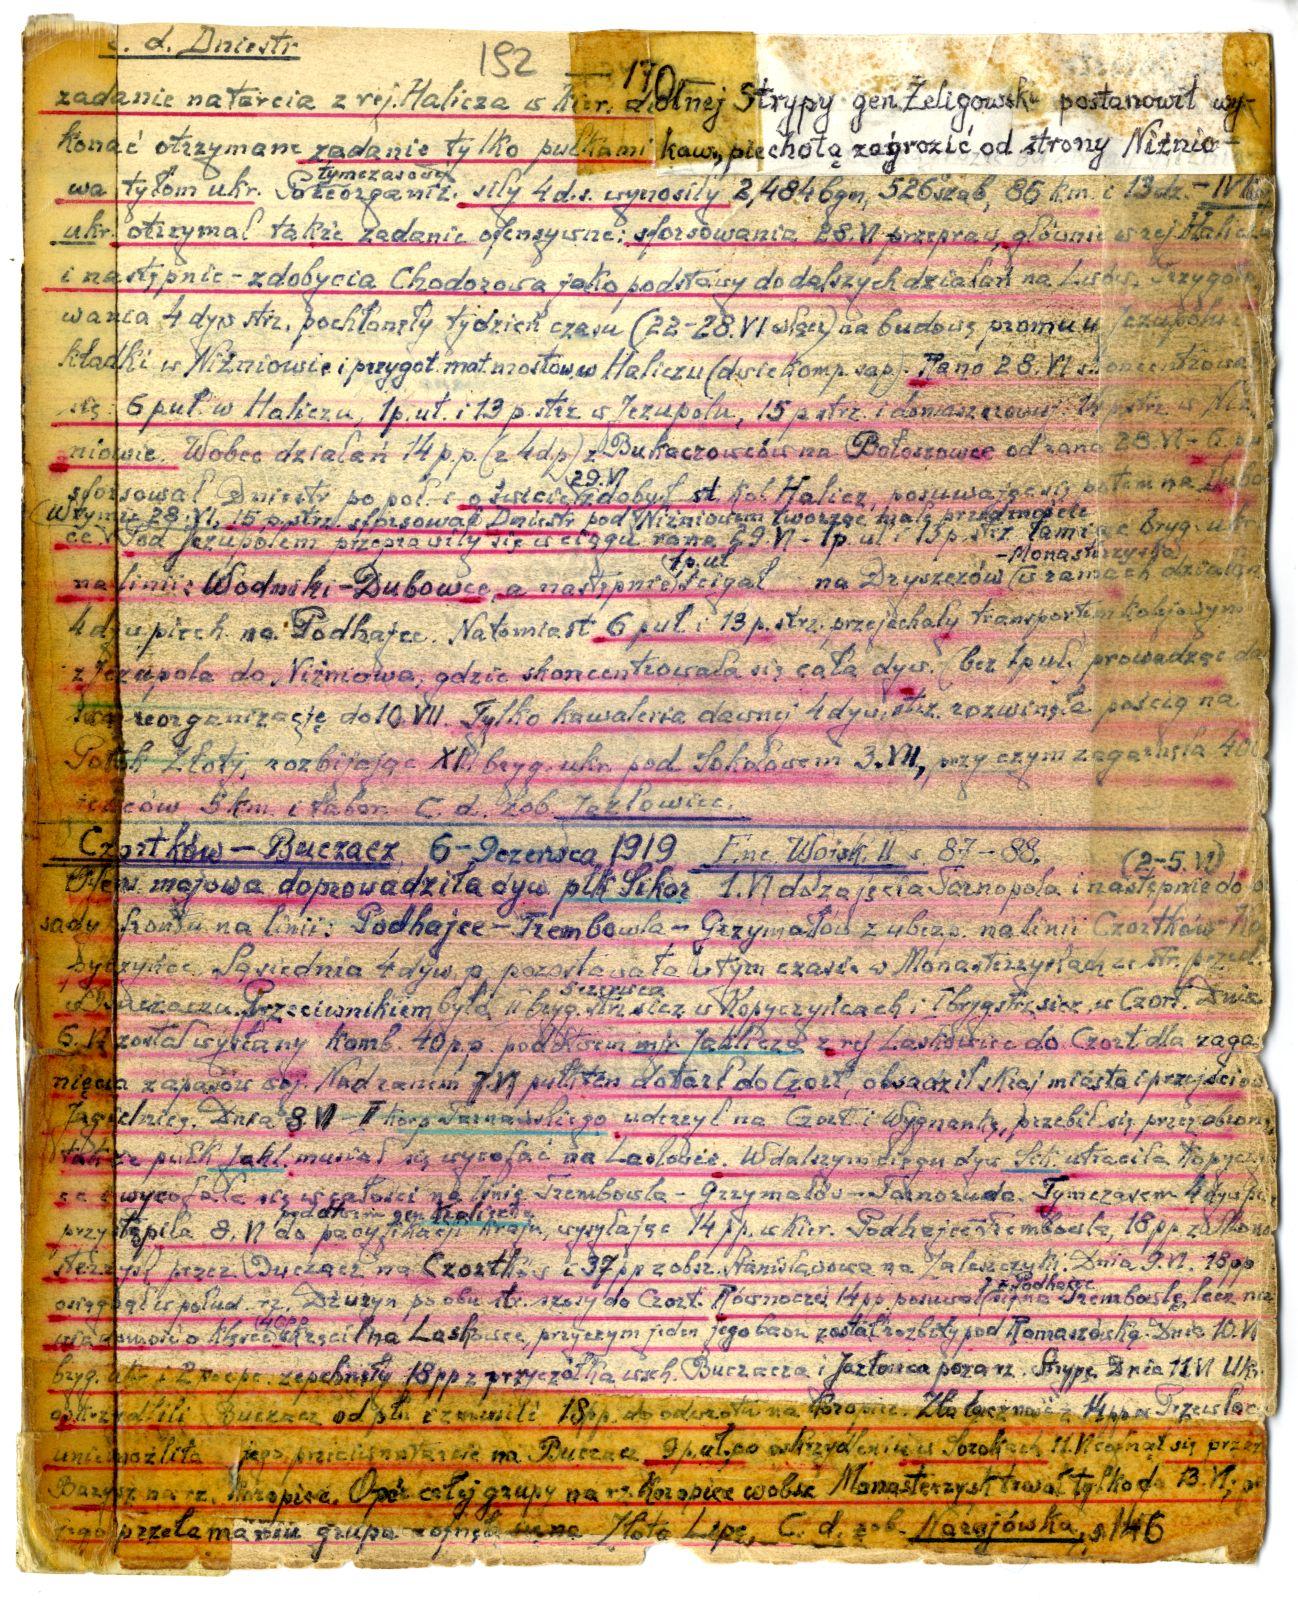 c. d. Dniestr
192 — 170 —
zadanie natarcia z rej. Halicza w kier. dolnej Strypy gen Żeligowski postanowił wy-
konać otrzymane zadanie tylko pułkami kaw., piechotą zagrozić od strony Niżnio-
tymczasową
wa tyłom ukr. Po reorganiz. siły 4 d.s. wynosiły 2,484 bgn, 526 szab, 86 k.m. i 13 dz. – IV
ukr. otrzymał także zadanie ofensywne: sforsowania 28.VI przepraw, głównie w rej Halicza
i następnie – zdobycia Chodorowa jako podstawy do dalszych działań na Lwów. Przygoto
wania 4 dyw strz. pochłonęły tydzień czasu (22-28.VI włącz) na budowę promu w Jezupolu i
kładki w Niżniowie i przygot. mat. mostow. w Haliczu (dwie komp. sap). Rano 28.VI skoncentrowa
się: 6 puł. w Haliczu, 1 p. uł. i 13 p. strz w Jezupolu, 15 p strz. i domaszerowuj. 14 p strz. w Niż
niowie. Wobec działań 14 p.p. (z 4 d p) z Bukaczowców na Bołszowce od rana 28.VI – 6. pu
29.VI
sforsował Dniestr po poł. i o świcie zdobył st. kol. Halicz, posuwając się potem na Dubo
W tymże 28.VI, 15 p. strz. sforsował Dniestr pod Niżniowem tworząc mały przedmoście
ce. Pod Jezupolem przeprawiły się w ciągu rana 29.VI – 1 p. uł i 13 p. strz łamiąc bryg. ukr.
1 p. uł – Monasterzyska
na linii: Wodniki – Dubowce, a następnie ścigał na Dryszczów (w ramach działań
4 dyw. piech. na Podhajce. Natomiast 6 puł i 13 p. strz. przejechały transportem kolejowym
z Jezupola do Niżniowa, gdzie skoncentrowała się cała dyw. (bez 1 puł) prowadząc da
reorganizację do 10 VII. Tylko kawaleria dawnej 4 dyw. strz. rozwinęła pościg na
Potok Złoty, rozbijając XI. bryg. ukr. pod Sokołowem 3.VII, przy czym zagarnęła 400
jeńców 5 km. i tabor. C. d. zob. Jazłowiec.
Czortków – Buczacz 6–9 czerwca 1919 Enc. Wojsk. II s. 87–88.
(2-5.VI)
Ofens. majowa doprowadziła dyw. płk Sikor 1.VI do zajęcia Tarnopola i następnie do o
sady frontu na linii: Podhajce – Trembowla – Grzymałów z ubezp. na linii Czortków – Ko
pyczyńce. Sąsiednia 4 dyw. p. pozostawała w tym czasie w Monasterzyskach ze str. przed.
5 czerwca
w Buczaczu. Przeciwnikiem była II bryg. strz. siecz w Kopyczyńcach i I bryg str. siecz. w Czort. Dnia
6.VI został wysłany komb. 40 p.p. pod dtwem mjr Jaklicza z rej Laskowiec do Czort dla zaga
nięcia zapasów woj. Nad ranem 7.VI pułk ten dotarł do Czort, obsadził skraj miasta i przejście
Jagielnicę. Dnia 8 VI II korp Tarnawskiego uderzył na Czort. i Wygnankę, przebił się przez obronę,
tak że pułk Jakl. musiał się wycofać na Laskowce. W dalszym ciągu dyw Sik utraciła Kopyczyń
ce i wycofała się w całości na linię Trembowla – Grzymałów – Tarnoruda. Tymczasem 4 dyw. p.
pod dtwem gen
przystąpiła 8.VI do pacyfikacji kraju, wysyłając 14 pp. w kier. Podhajce – Trembowla, 18 pp z
sterzysk przez Buczacz na Czortków i 37 pp z obsz. Stanisławowa na Zaleszczyk. Dnia 9.VI. 18 pp
z Podhajec
osiągnął w połud. rz. Dżuryn po obu str. szosy do Czort. Równocześ. 14 pp. posuwał się na Trembowlę, lecz na
40 pp
wiadomość o klęsce skręcił na Laskowce, przyczym jeden jego baon został rozbity pod Romaszówką. Dnia 10.VI
bryg. ukr i zepchnęły 18 pp z przyczółka wsch. Buczacza i Jazłowca poza rz. Strypę. Dnia 11.VI Ukr.
oskrzydlili Buczacz od płn i zmusili 18 pp. do odwrotu na Koropiec.
uniemożliła jego natarcie na Buczacz. 9 p. uł. po oskrzydleniu w Sorokach 11.VI cofnął się przez
Barysz na rz. Koropiec. Opór całej grupy na rz. Koropiec wobec Monasterzysk trwał tylko do 13.VI; po
jego przełamaniu grupa cofnęła się na Złotą Lipę. C. d. zob. Narajówka, s. 146